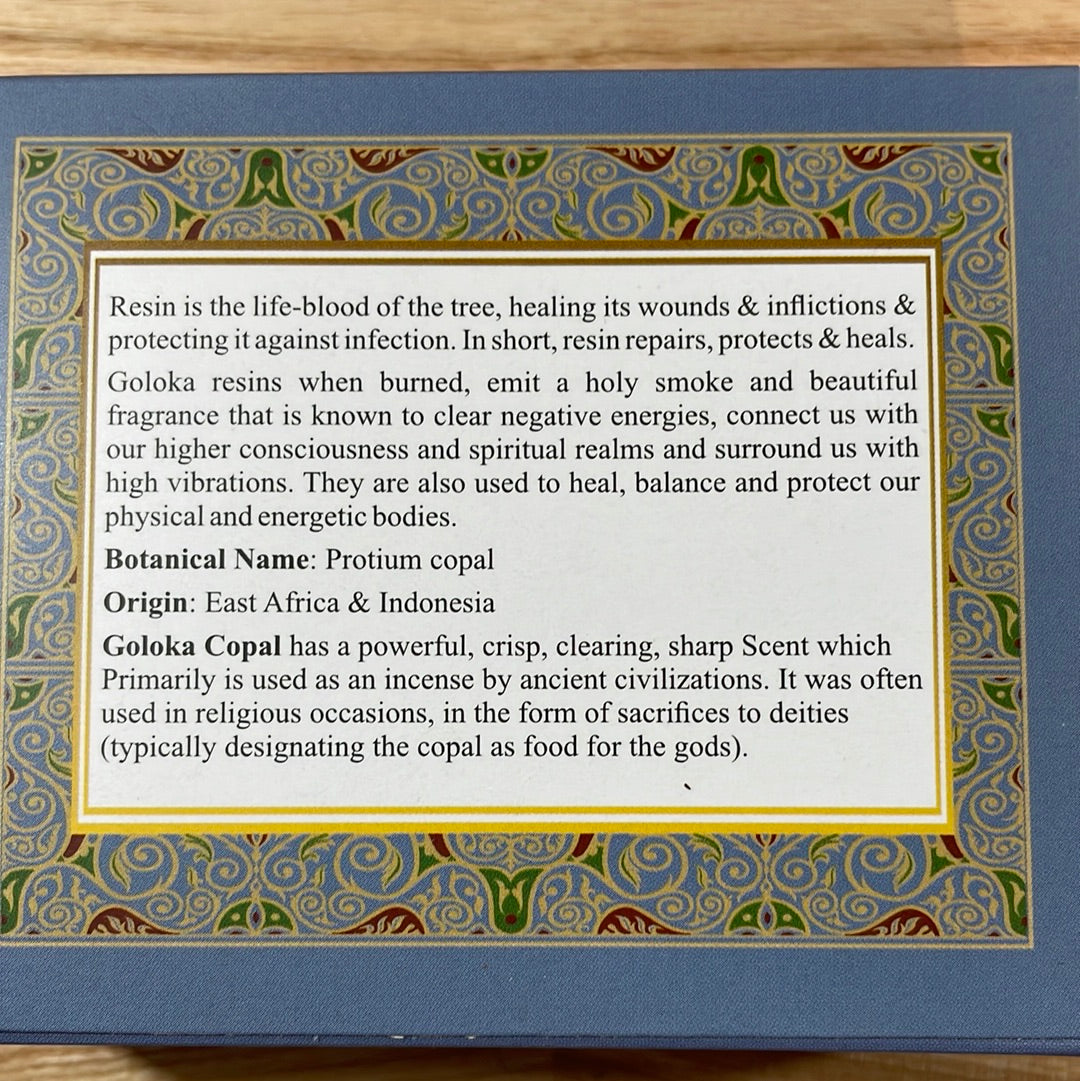 Resin is the life-blood of the tree, healing its wounds & inflictions &
protecting it against infection. In short, resin repairs, protects & heals.
Goloka resins when burned, emit a holy smoke and beautiful
fragrance that is known to clear negative energies, connect us with
our higher consciousness and spiritual realms and surround us with
high vibrations. They are also used to heal, balance and protect our
physical and energetic bodies.
Botanical Name: Protium copal
Origin: East Africa & Indonesia
Goloka Copal has a powerful, crisp, clearing, sharp Scent which
Primarily is used as an incense by ancient civilizations. It was often
used in religious occasions, in the form of sacrifices to deities
(typically designating the copal as food for the gods).